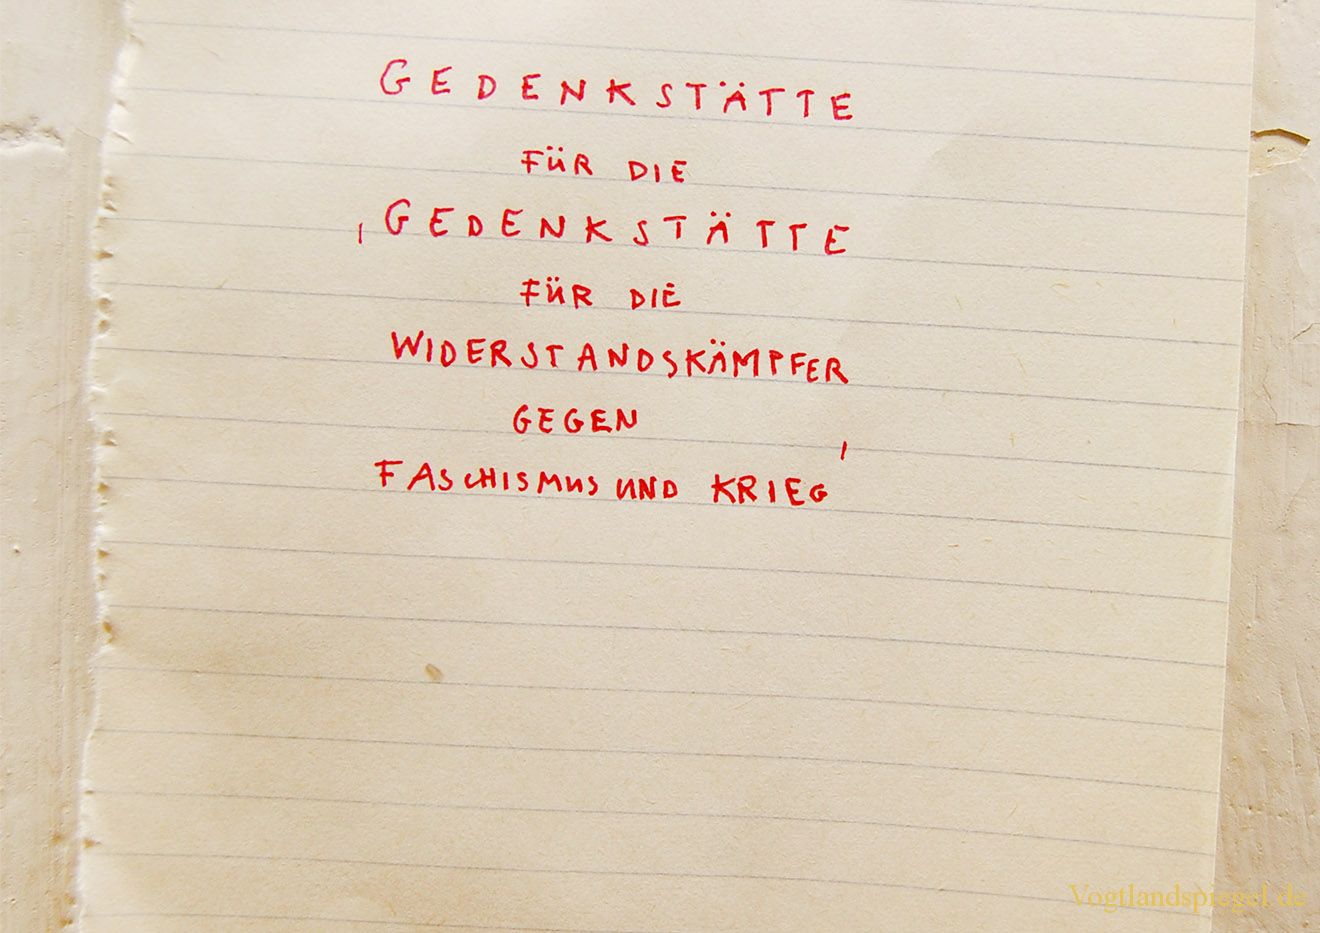 GEDENKSTÄTTE
FÜR DIE
'GEDENKSTÄTTE
FÜR DIE
WIDERSTANDSKÄMPFER
GEGEN
FASCHISMUS UND KRIEG'
Vogtlandspiegel.de